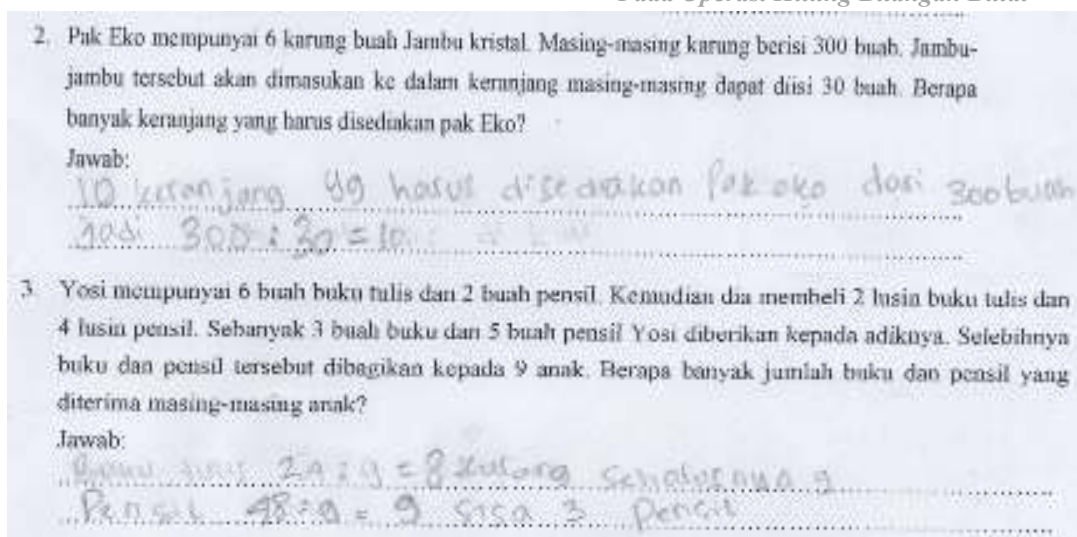 Pada Operasi Hitung Bilangan Bulat
2. Pak Eko mempunyai 6 karung buah Jambu kristal. Masing-masing karung berisi 300 buah. Jambu-
jambu tersebut akan dimasukan ke dalam keranjang masing-masing dapat diisi 30 buah. Berapa
banyak keranjang yang harus disediakan pak Eko?
Jawab:
10 keranjang yg harus disediakan Pak eko dari 300 buah
Jadi 300 : 30 = 10
3. Yosi mempunyai 6 buah buku tulis dan 2 buah pensil. Kemudian dia membeli 2 lusin buku tulis dan
4 lusin pensil. Sebanyak 3 buah buku dan 5 buah pensil Yosi diberikan kepada adiknya. Selebihnya
buku dan pensil tersebut dibagikan kepada 9 anak. Berapa banyak jumlah buku dan pensil yang
diterima masing-masing anak?
Jawab:
: 9 = 8 kurang seharusnya 9
Pensil 48 : 9 = 9 sisa 3 Pensil